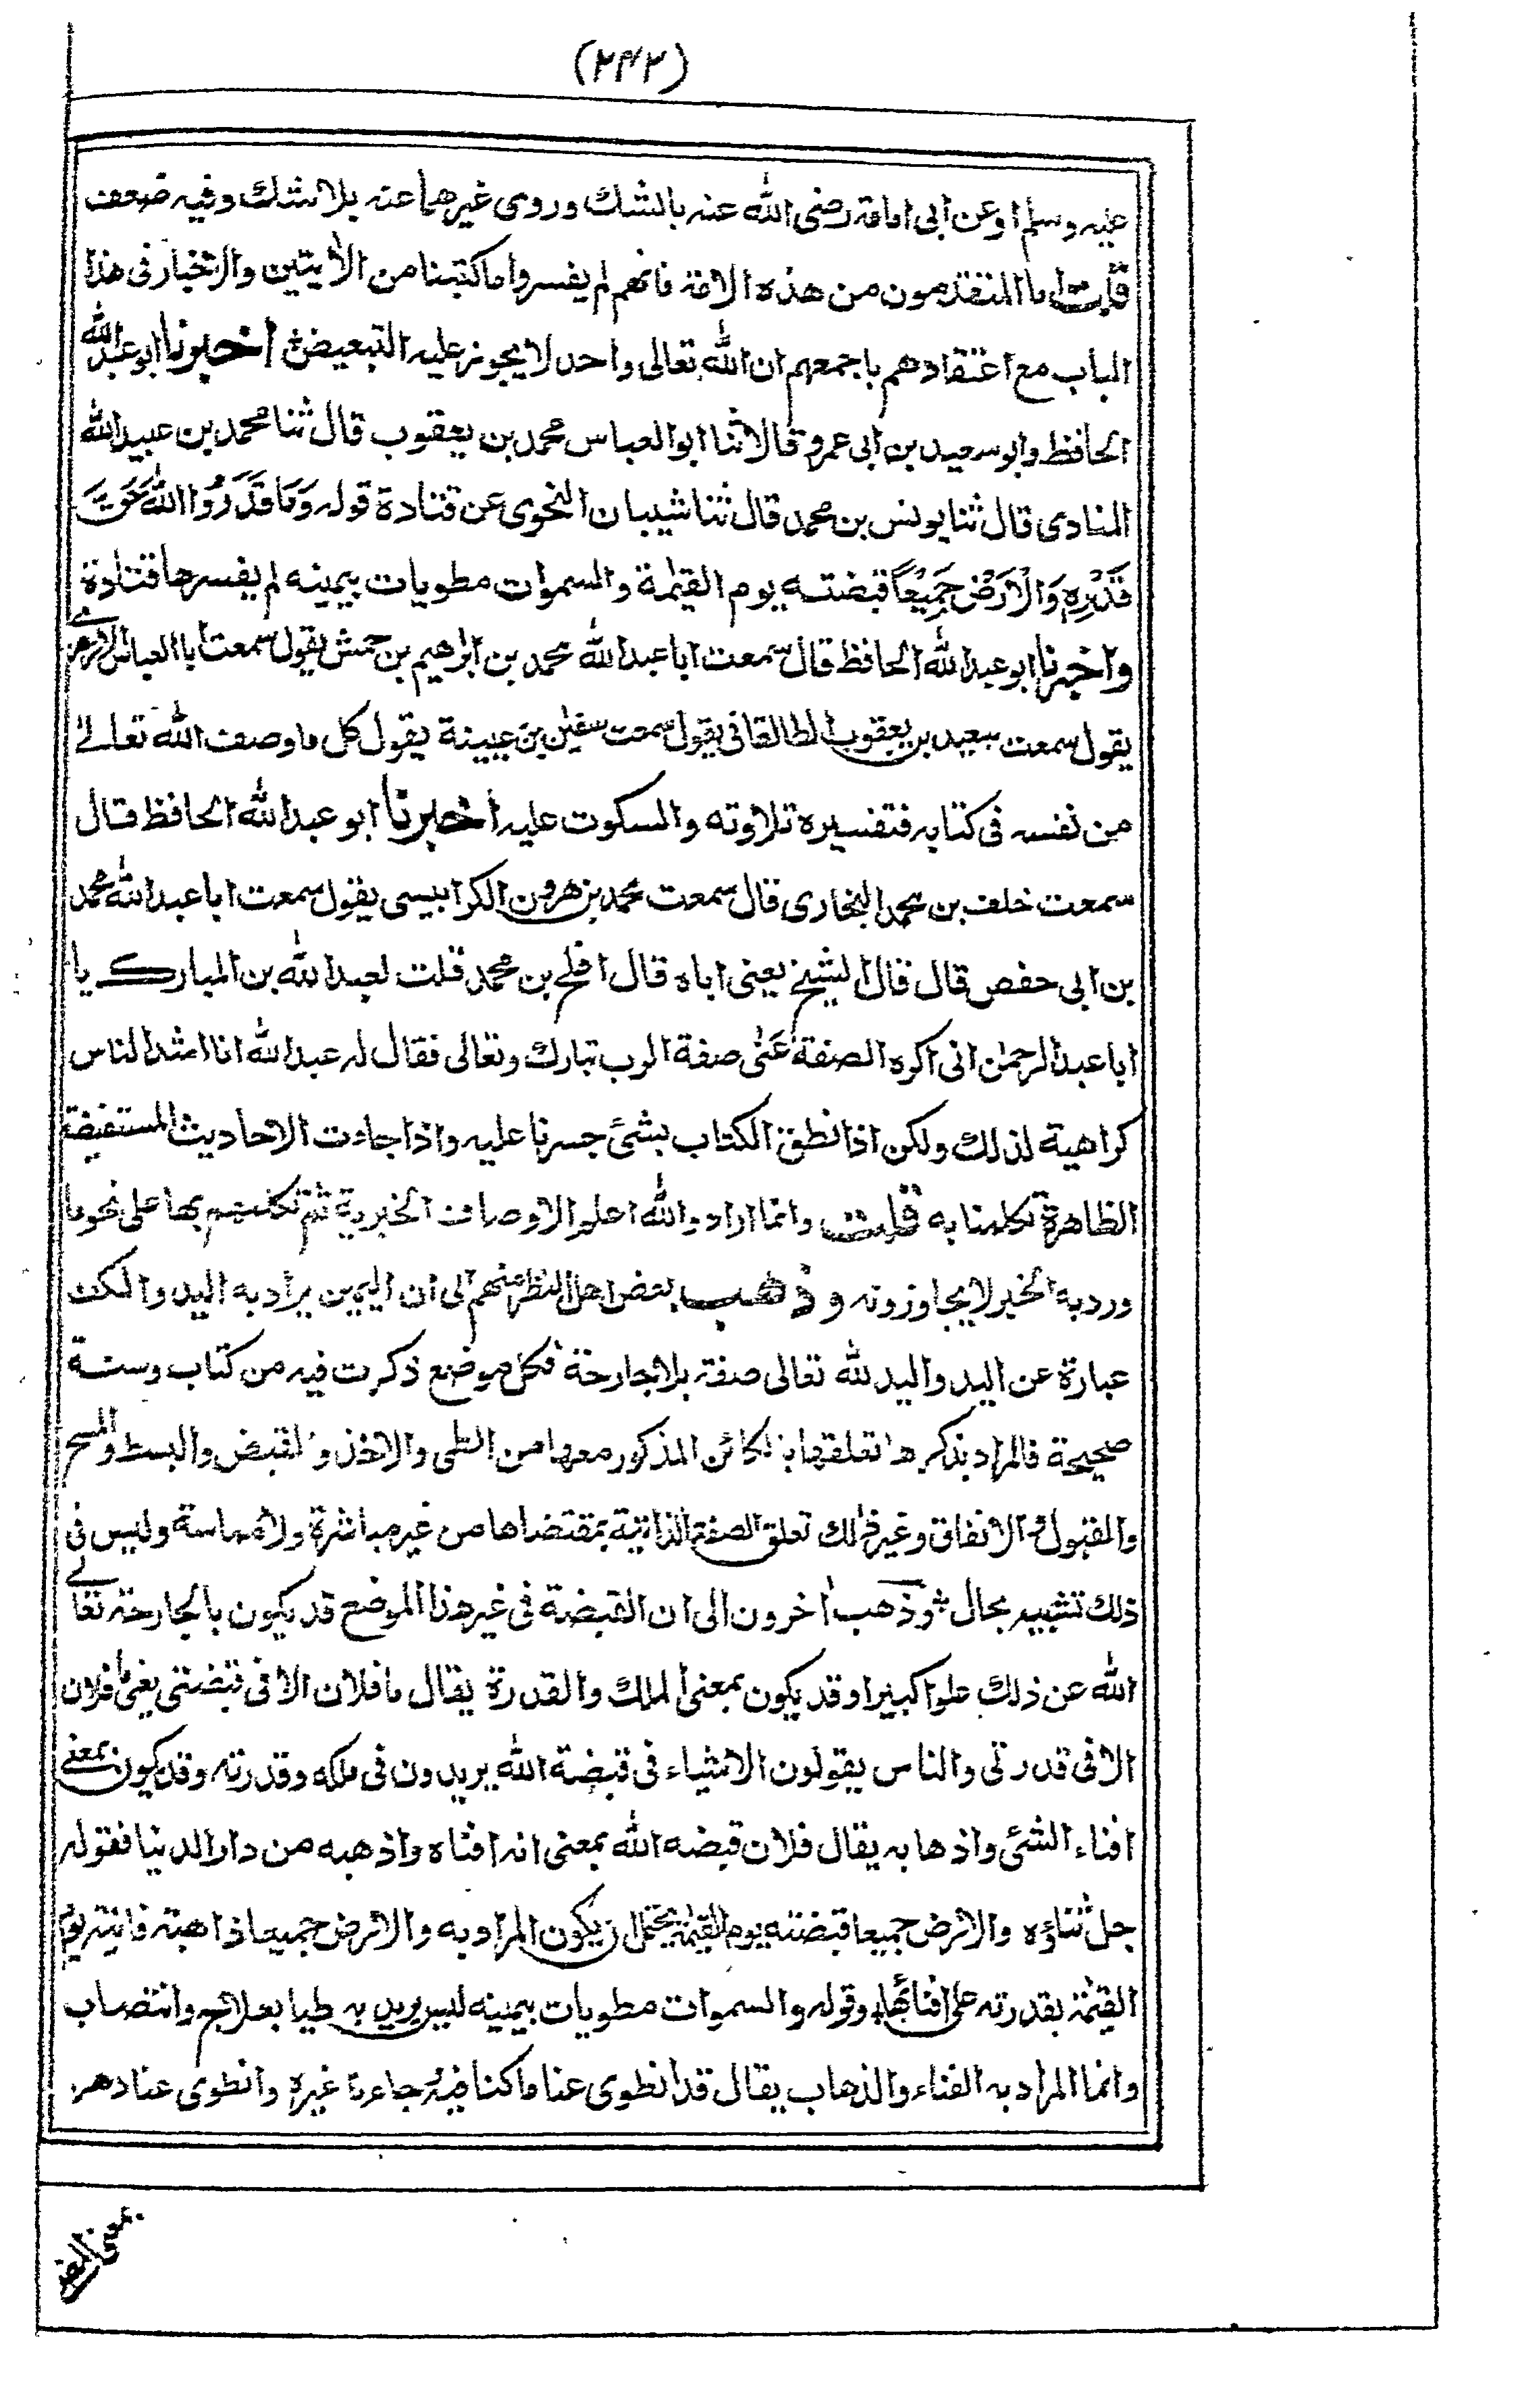 (٢٤٢)
عليه وسلم او عن ابى امامة رضى الله عنه بالشك وروى غيرهما عنه بلا شك وفيه ضعف
قلت اما المتقدمون من هذه الامة فانهم لم يفسروا ما كتبنا من الأيتين والاخبار فى هذا
الباب مع اعتقادهم باجمعهم ان الله تعالى واحد لا يجوز عليه التبعيض اخبرنا ابو عبد الله
الحافظ وابو سعيد بن ابى عمرو قالا ثنا ابو العباس محمد بن يعقوب قال ثنا محمد بن عبيد الله
المنادى قال ثنا يونس بن محمد قال ثنا شيبان النحوى عن قتادة قوله وَمَا قَدَرُوا اللهَ حَقَّ
قَدْرِهِ وَالْاَرْضُ جَمِيْعًا قبضته يوم القيمة والسموات مطويات بيمينه لم يفسرها قتادة
واخبرنا ابو عبد الله الحافظ قال سمعت ابا عبد الله محمد بن ابراهيم بن حمش يقول سمعت ابا العباس الازهرى
يقول سمعت سعيد بن يعقوب الطالقانى يقول سمعت سفين بن عيينة يقول كل ما وصف الله تعالى
من نفسه فى كتابه فتفسيره تلاوته والسكوت عليه اخبرنا ابو عبد الله الحافظ قال
سمعت خلف بن محمد البخارى قال سمعت محمد بن هرون الكرابيسى يقول سمعت ابا عبد الله محمد
بن ابى حفص قال قال الشيخ يعنى اباه قال افلح بن محمد قلت لعبد الله بن المبارك يا
ابا عبد الرحمن انى اكره الصفة عَنٰى صفة الرب تبارك وتعالى فقال له عبد الله انا اشد الناس
كراهية لذلك ولكن اذا نطق الكتاب بشئ جسرنا عليه واذا جاءت الاحاديث المستفيضة
الظاهرة تكلمنا به قلت وانما اراد والله اعلم الاوصاف الخبرية ثم تكلمهم بها على نحو ما
ورد به الخبر لا يجاوزونه وذهب بعض اهل النظر منهم الى ان اليمين يراد به اليد والكف
عبارة عن اليد واليد لله تعالى صفة بلا جارحة فكل موضع ذكرت فيه من كتاب وسنة
صحيحة فالمراد بذكرها تعلقها بالكائن المذكور معها من الطى والاخذ والقبض والبسط والمسح
والقبول والانفاق وغير ذلك تعلق الصفة الذاتية بمقتضاها من غير مباشرة ولا مماسة وليس فى
ذلك تشبيه بحال وذهب اخرون الى ان القبضة فى غير هذا الموضع قد يكون بالجارحة تعالى
الله عن ذلك علوا كبيرا وقد يكون بمعنى الملك والقدرة يقال ما فلان الا فى قبضتى يعنى ما فلان
الا فى قدرتى والناس يقولون الاشياء فى قبضة الله يريدون فى ملكه وقدرته وقد يكون بمعنى
افناء الشئ واذهابه يقال فلان قبضه الله بمعنى انه افناه واذهبه من دار الدنيا فقوله
جل ثناؤه والارض جميعا قبضته يوم القيمة يحتمل ان يكون المراد به والارض جميعا ذاهبة فانية يوم
القيمة بقدرته على افنائها وقوله والسموات مطويات بيمينه ليس يريد به طيا بعلاج وانتصاب
وانما المراد به الفناء والذهاب يقال قد انطوى عنا ما كنا فيه وجاءنا غيره وانطوى عنا دهر
بمعنى المضى